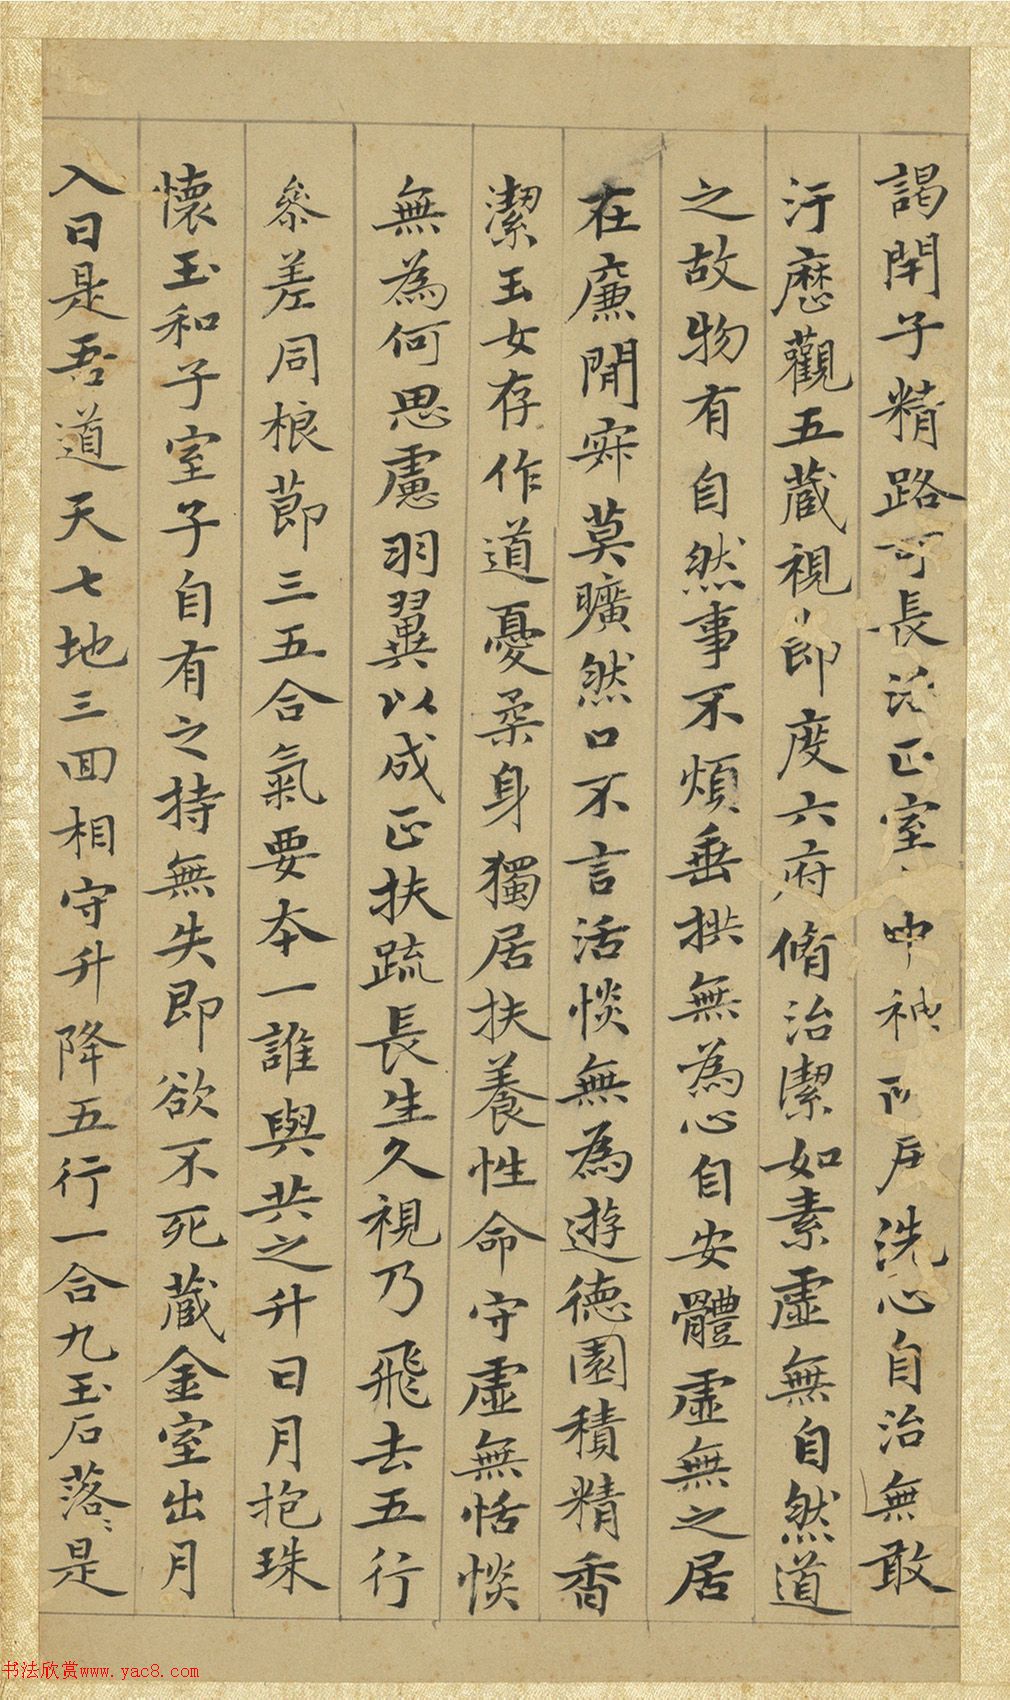 謁閇子精路可長活正室中神所居洗心自治無敢
汙歷觀五藏視節度六府脩治潔如素虛無自然道
之故物有自然事不煩垂拱無為心自安體虛無之居
在廉閒寂莫曠然口不言活惔無為遊德園積精香
潔玉女存作道憂柔身獨居扶養性命守虛無恬惔
無為何思慮羽翼以成正扶疏長生久視乃飛去五行
叅差同根節三五合氣要本一誰與共之升日月抱珠
懷玉和子室子自有之持無失即欲不死藏金室出月
入日是吾道天七地三回相守升降五行一合九玉石落〻是
书法欣赏www.yac8.com